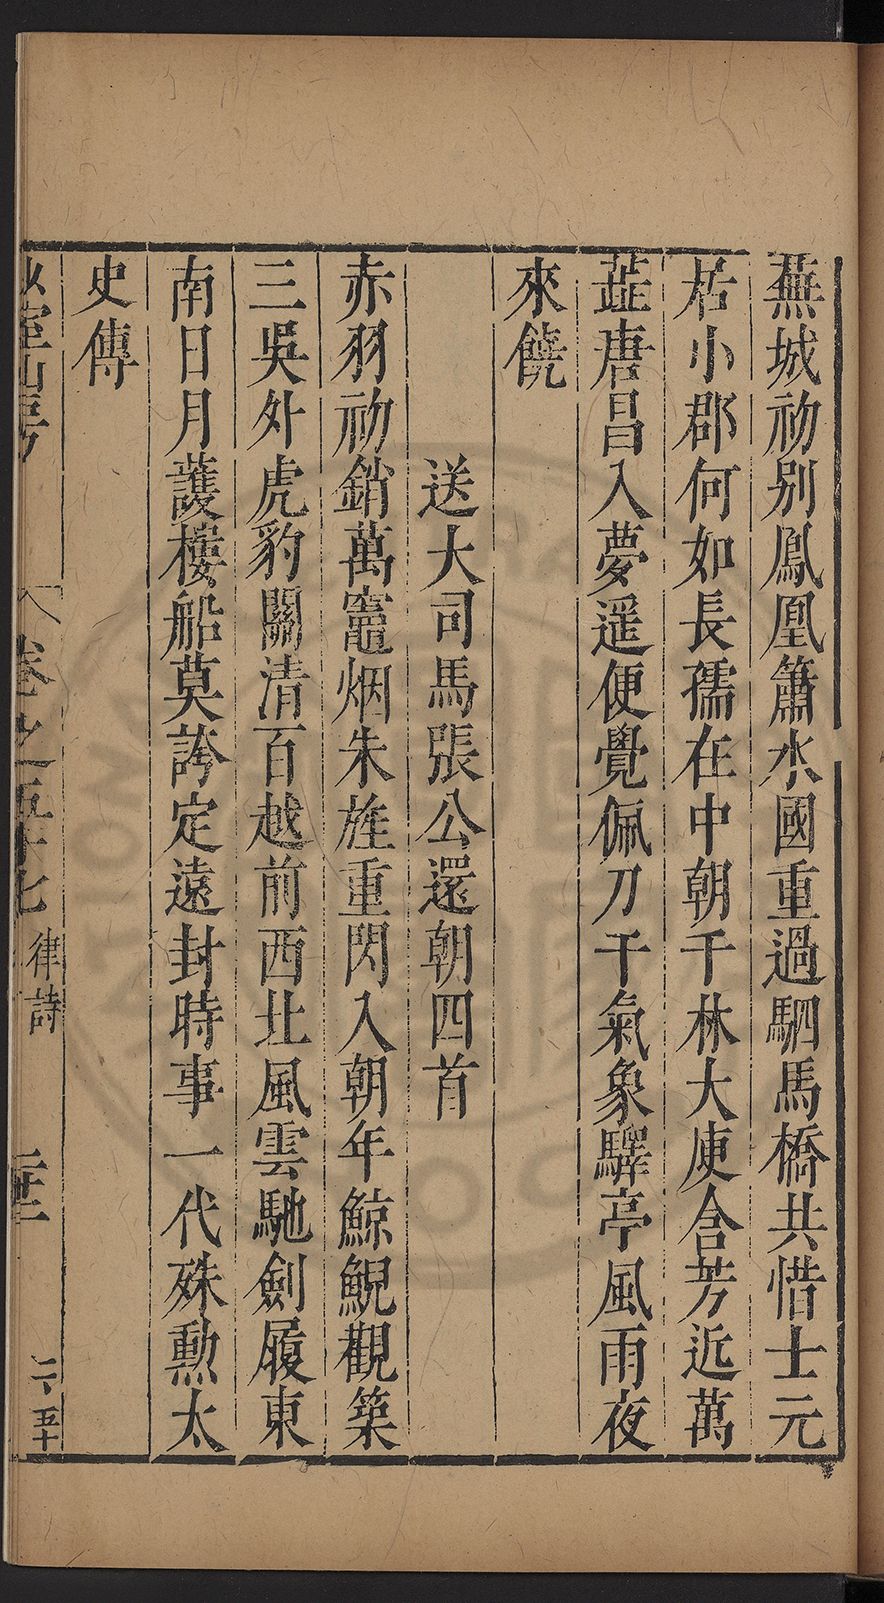 蕪城初別鳳凰簫水國重過駟馬橋共惜士元
居小郡何如長孺在中朝千林大庾含芳近萬
蓝唐昌入夢遥便覺佩刀干氣象驛亭風雨夜
來饒
送大司馬張公還朝四首
赤羽初銷萬竈烟朱旌重閃入朝年鯨鯢觀築
三吳外虎豹關清百越前西北風雲馳劍履東
南日月護樓船莫誇定遠封時事一代殊勳太
史傳
少室山房
卷之五十七
律詩
二十二
二、五十